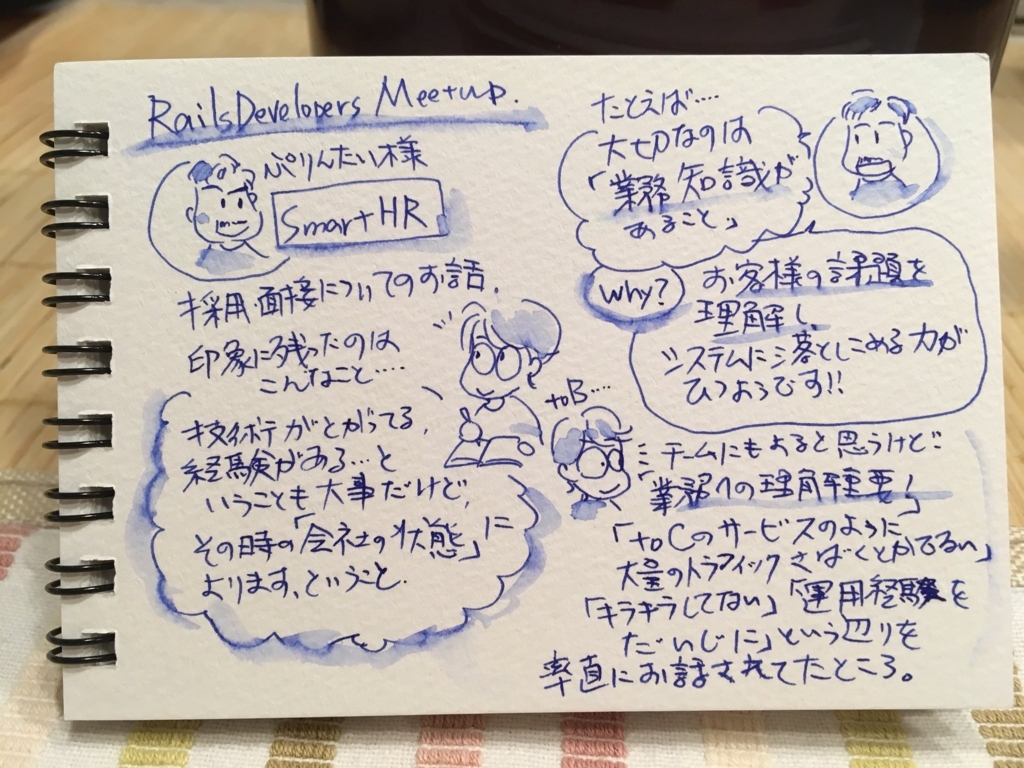 RailsDevelopers Meetup.
ぷりんたい様
SmartHR
採用・面接についてのお話.
印象に残ったのは
こんなこと....
技術的にとがってる,
経験がある...と
いうことも大事だけど,
その時の「会社の状態」に
よります、ということ.
たとえば....
大切なのは
「業務知識が
あること」
why?
お客様の課題を
理解し、
システムに落としこめる力が
ひつようです!!
toB....
チームにもよると思うけど
「業務への理解重要」
「toCのサービスのように
大量のトラフィックさばくとかでない」
「キラキラしてない」「運用経験を
だいじに」という辺りを
率直にお話されてたところ。